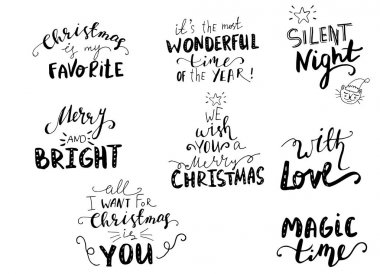 Christmas
is my
FAVORITE
it's the most
WONDERFUL
time
OF THE YEAR!
SILENT
Night
Merry
AND
BRIGHT
WE
wish
YOU a
Merry
CHRISTMAS
with
LOVE
all
I WANT FOR
Christmas
is
YOU
MAGIC
time